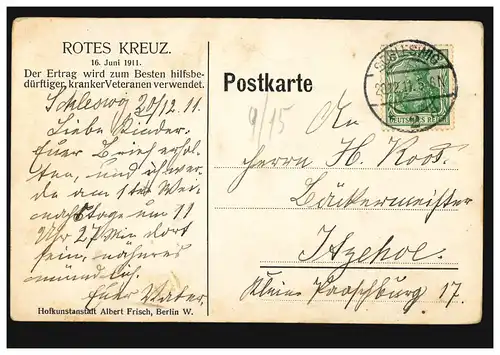 ROTES KREUZ.
16. Juni 1911.
Der Ertrag wird zum Besten hilfsbe-
dürftiger, kranker Veteranen verwendet.
Schleswig 20/12. 11.
Liebe Kinder.
Euer Brief erhol-
ten, und ich wer-
de am 1ten Wei-
nachstage um 11
Uhr 27 Min dort
sein, näheres
mündlich.
Euer Vater.
Hofkunstanstalt Albert Frisch, Berlin W.
Postkarte
9/15
SCHLESWIG
DEUTSCHES REICH
An
Herrn H. Roos.
Bäckermeister
Itzehoe.
Kleine Paaschburg 17.